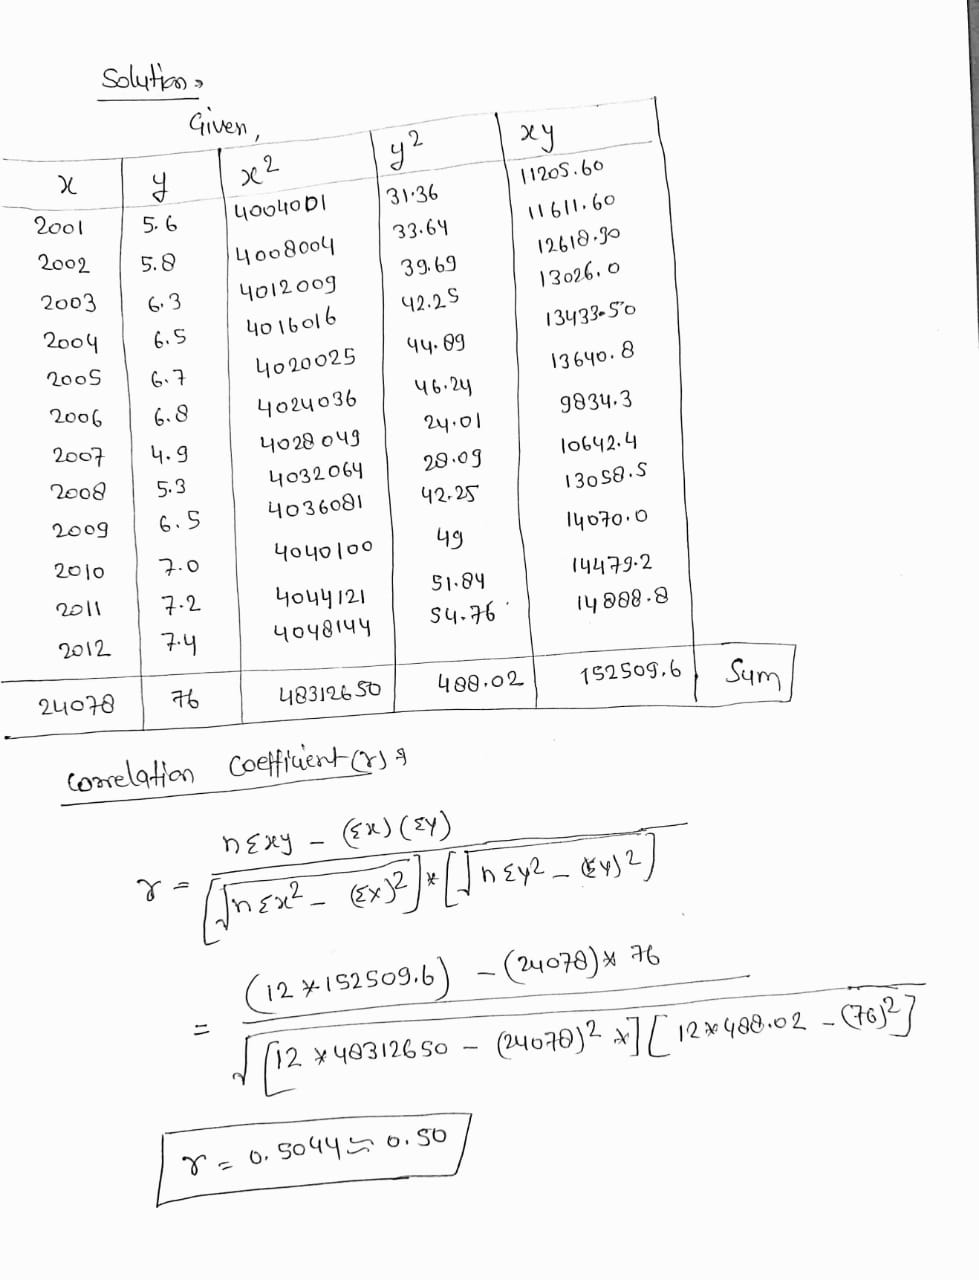 Solution,
Given,
x y x² y² xy
2001 5.6 4004001 31.36 11205.60
2002 5.8 4008004 33.64 11611.60
2003 6.3 4012009 39.69 12618.90
2004 6.5 4016016 42.25 13026.0
2005 6.7 4020025 44.89 13433.50
2006 6.8 4024036 46.24 13640.8
2007 4.9 4028049 24.01 9834.3
2008 5.3 4032064 28.09 10642.4
2009 6.5 4036081 42.25 13058.5
2010 7.0 4040100 49 14070.0
2011 7.2 4044121 51.84 14479.2
2012 7.4 4048144 54.76 14888.8
24078 76 48312650 488.02 152509.6 Sum
Correlation Coefficient (r) :
r = nΣxy - (Σx)(Σy) / [√nΣx² - (Σx)²] * [√nΣy² - (Σy)²]
= (12*152509.6) - (24078)*76 / √[12*48312650 - (24078)² *][12*488.02 - (76)²]
r = 0.5044 ≃ 0.50